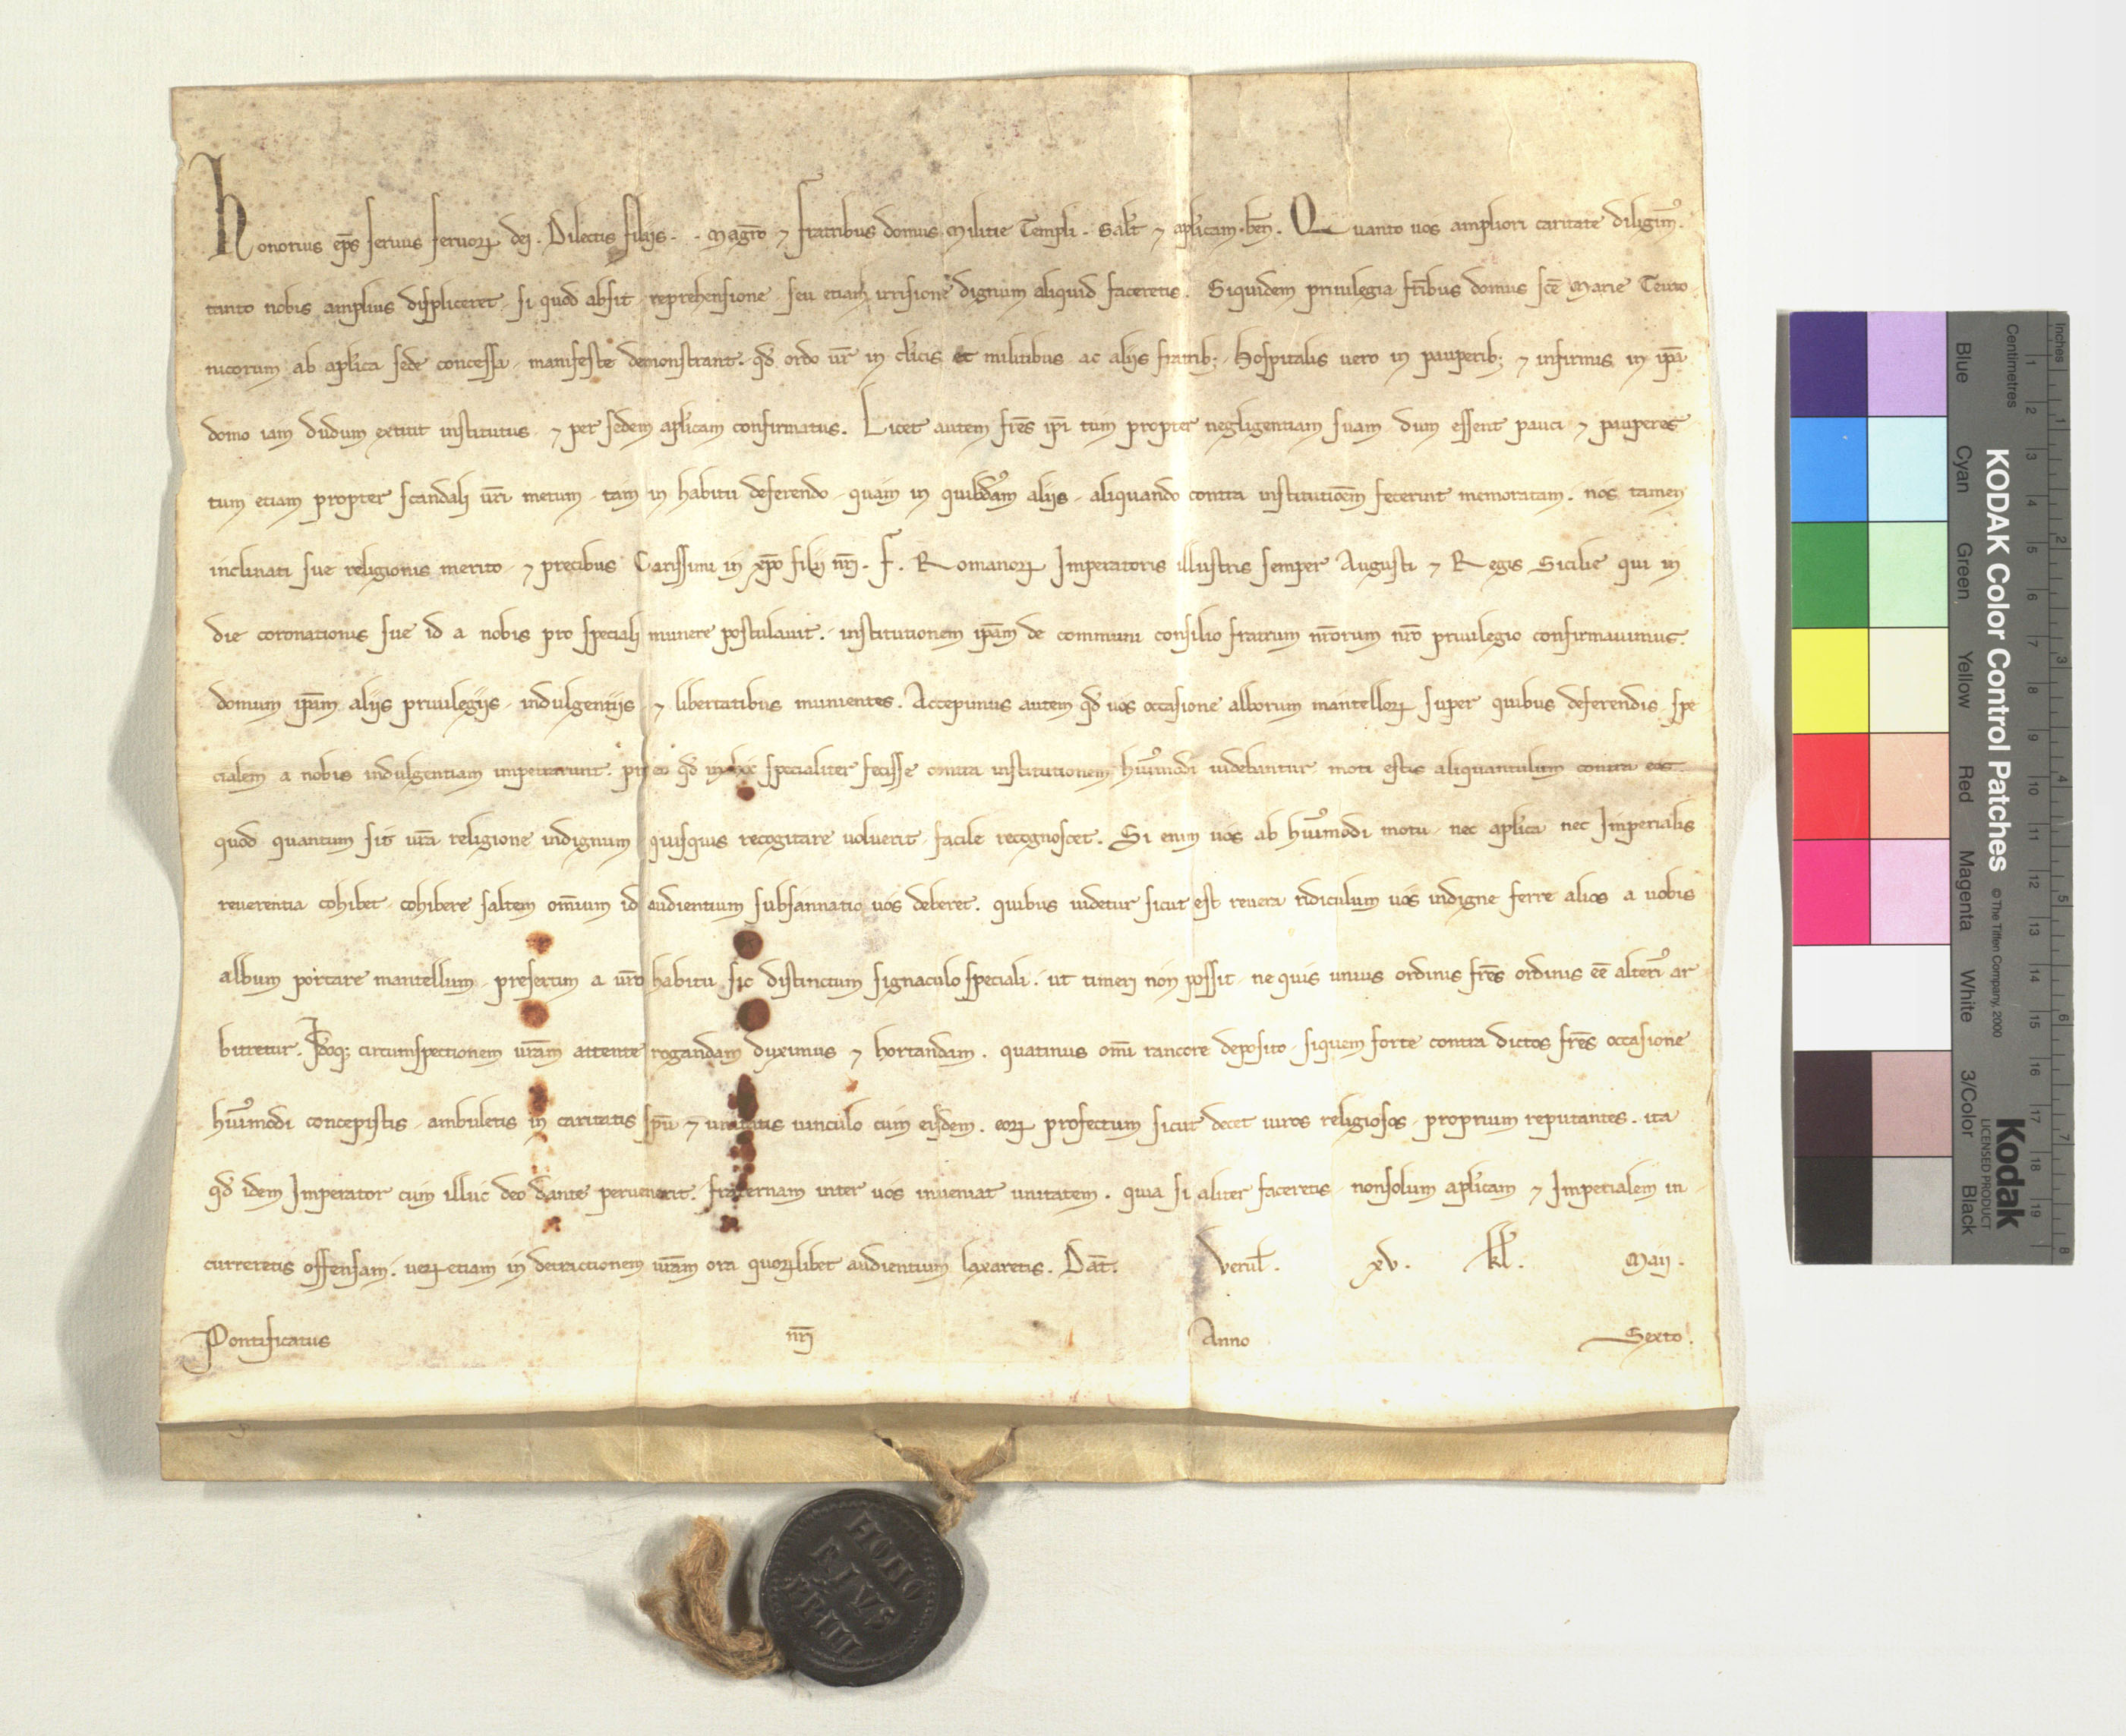 Honorius ep̄s seruus seruoꝝ dei. Dilectis filiis. . Magr̄o ⁊ fratribus domus Militie Templi. Sal̄t ⁊ apl̄icam ben̄. Quanto uos ampliori caritate diligim᷒.
tanto nobis amplius displiceret. si quod absit reprehensione seu etiam irrisione dignum aliquid faceretis. Siquidem priuilegia fr̄ibus domus sc̄e Marie Teuto-
nicorum ab apl̄ica sede concessa, manifeste demonstrant. qd̄ ordo ur̄ in cl̄icis et militibus ac aliis fratrib; . Hospitalis uero in pauperib; ⁊ infirmis in ip̄a
domo iam dudum extitit institutus ⁊ per sedem apl̄icam confirmatus. Licet autem fr̄es ip̄i tum propter negligentiam suam dum essent pauci ⁊ pauperes
tum etiam propter scandali ur̄i metum, tam in habitu deferendo, quam in quibdam aliis, aliquando contra institutiōem fecerint memoratam. nos tamen
inclinati sue religionis merito, ⁊ precibus Carissimi in xp̄o filii nr̄i. F. Romanoꝝ Imperatoris illustris semper Augusti ⁊ Regis Sicilie qui in
die coronationis sue id a nobis pro speciali munere postulauit. institutionem ip̄am de communi consilio fratrum nr̄orum nr̄o priuilegio confirmauimus.
domum ip̄am aliis priuilegiis, indulgentiis ⁊ libertatibus munientes. Accepimus autem qd̄ uos occasione alborum mantelloꝝ super quibus deferendis spe
cialem a nobis indulgentiam impetrarunt. eo qd̄ in hoc specialiter fecisse contra institutionem hui᷒modi uidebantur, moti estis aliquantulum contra eos.
quod quantum sit ur̄a religione indignum quisquis recogitare uoluerit, facile recognoscet. Si enim uos ab hui᷒modi motu, nec apl̄ica nec Imperialis
reuerentia cohibet, cohibere saltem om̄ium id audientium subsannatio uos deberet. quibus uidetur sicut est reuera ridiculum uos indigne ferre alios a uobis
album portare mantellum, presertim a ur̄o habitu sic distinctum signaculo speciali. ut timeri non possit, ne quis unius ordinis fr̄es ordinis eē alteri᷒ ar
bitretur. Ideoq; circumspectionem ur̄am attente rogandam duximus ⁊ hortandam. quatinus om̄i rancore deposito, siquem forte contra dictos fr̄es occasione
hui᷒modi concepistis, ambuletis in caritatis sp̄u ⁊ unitatis uinculo cum eisdem. eoꝝ profectum sicut decet uiros religiosos, proprium reputantes. ita
qd̄ idem Imperator cum illuc deo dante peruenerit. fraternam inter uos inueniat unitatem. quia si aliter faceretis, nonsolum apl̄icam ⁊ Imperialem in-
curreretis offensam. ueꝝetiam in detractionem ur̄am ora quoꝝlibet audientium laxaretis. Dat̄. Verul̄. xv. kl̄. Maii.
Pontificatus nr̄i Anno Sexto.
HONO
RIVS
PP III
KODAK Color Control Patches
© The Tiffen Company, 2000
Kodak
LICENSED PRODUCT
Inches
Centimetres
Blue
Cyan
Green
Yellow
Red
Magenta
White
3/Color
Black
1 2 3 4 5 6 7 8 9 10 11 12 13 14 15 16 17 18 19
1 2 3 4 5 6 7 8